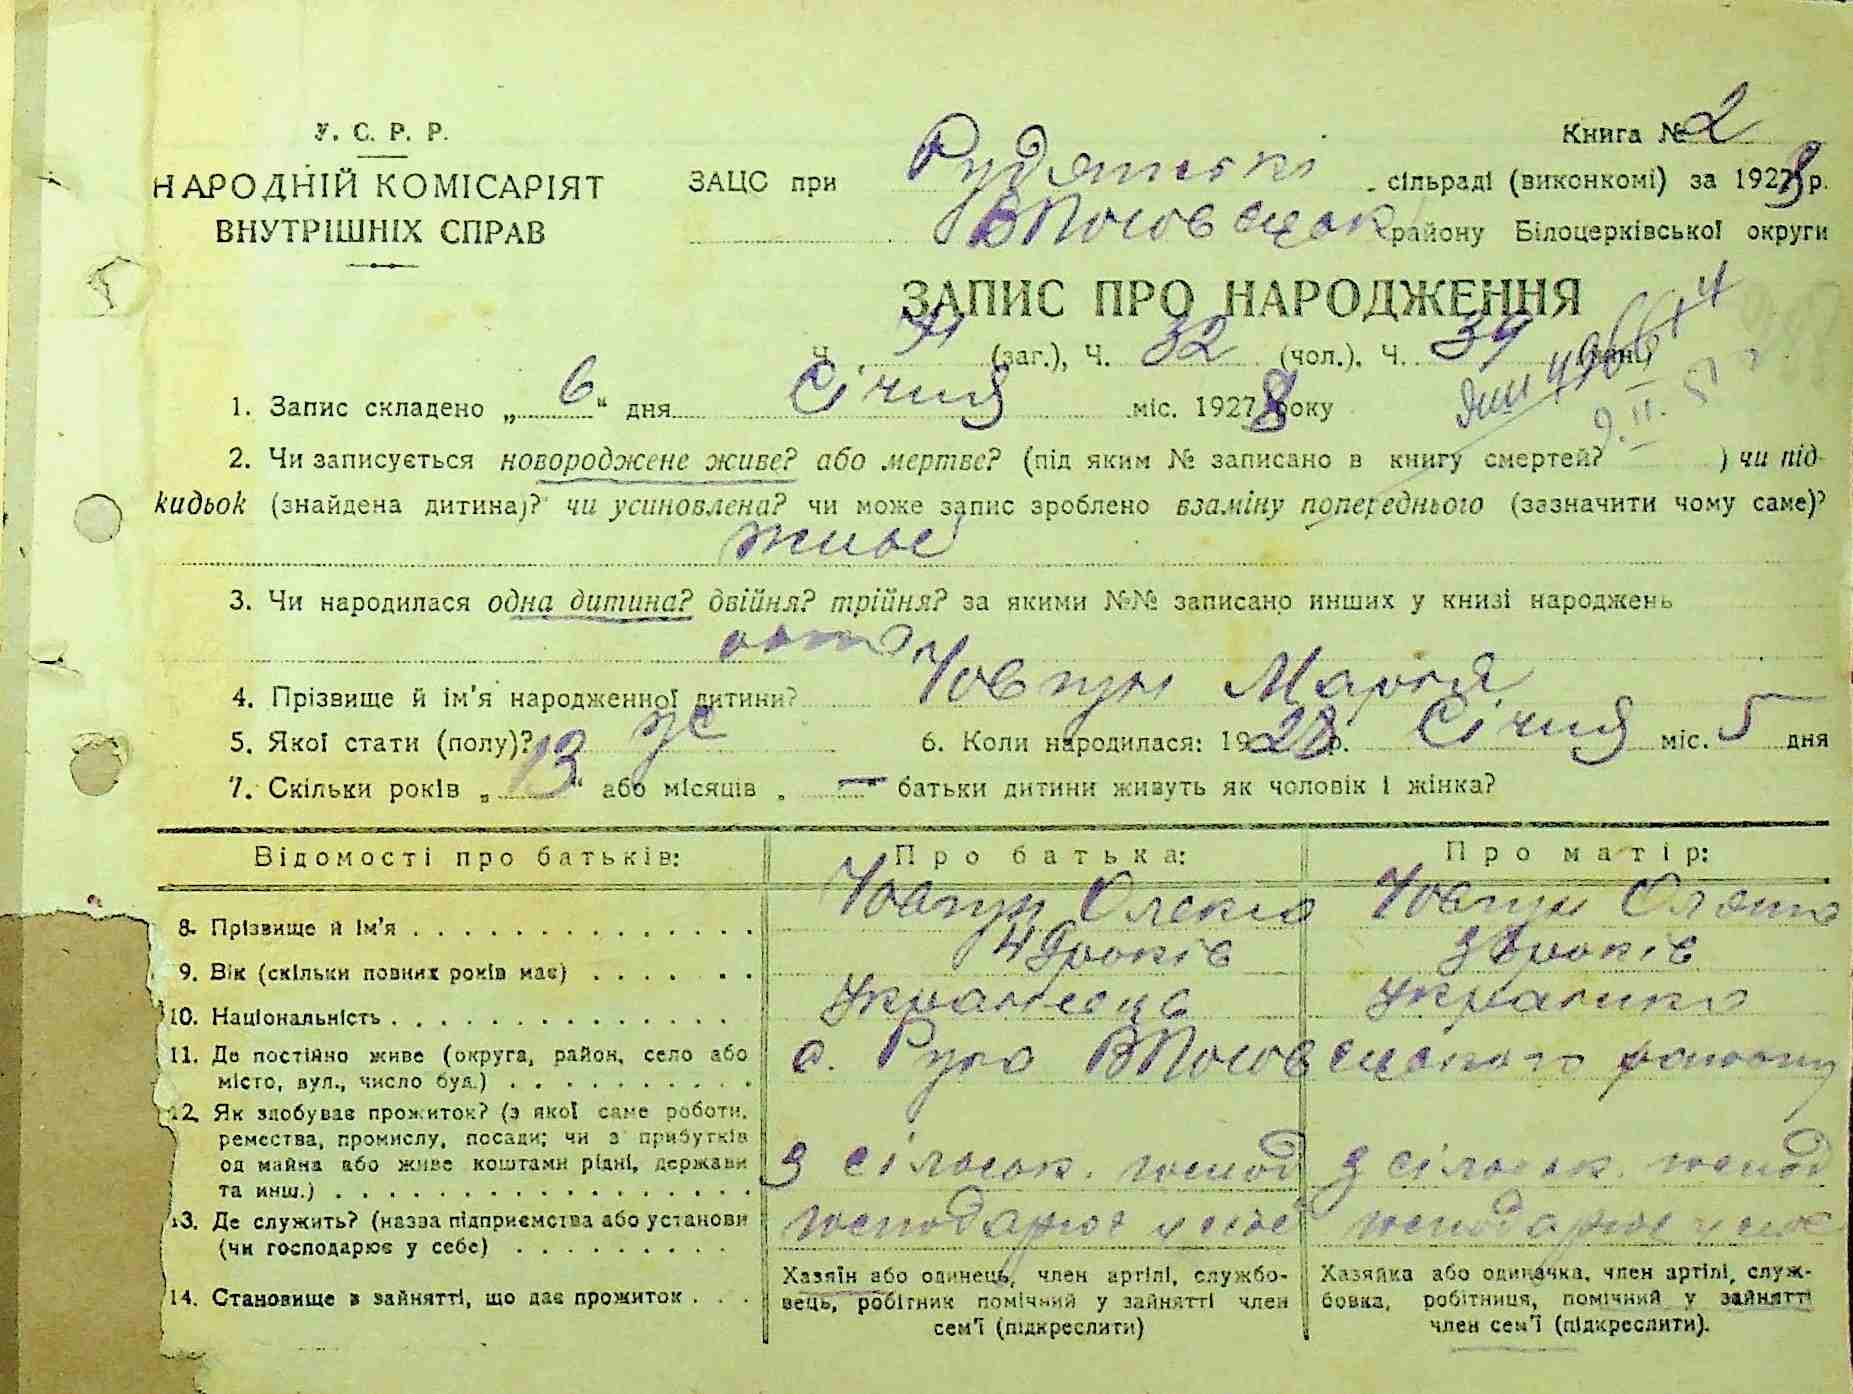 У. С. Р. Р.
НАРОДНІЙ КОМІСАРІЯТ
ВНУТРІШНІХ СПРАВ
Книга № 2
ЗАЦС при Рудянські сільраді (виконкомі) за 1928 р.
району Білоцерківської округи
ЗАПИС ПРО НАРОДЖЕННЯ
Ч. (заг.), Ч. 32 (чол.), Ч. 39
1. Запис складено „ 6 “ дня Січня міс. 1928 року
2. Чи записується новороджене живе? або мертве? (під яким № записано в книгу смертей? ) чи під-
кидьок (знайдена дитина)? чи усиновлена? чи може запис зроблено взаміну попереднього (зазначити чому саме)?
живе
3. Чи народилася одна дитина? двійня? трійня? за якими №№ записано инших у книзі народжень
одна
4. Прізвище й ім'я народженної дитини? Човпун Марія
5. Якої стати (полу)? ж 6. Коли народилася: 1928 р. Січня міс. 5 дня
7. Скільки років „ 13 “ або місяців „ — “ батьки дитини живуть як чоловік і жінка?
Відомості про батьків: Про батька: Про матір:
8. Прізвище й ім'я Човпун Олекса Човпун Оляна
9. Вік (скільки повних років має) років 38 років
10. Національність Українець Українка
11. Де постійно живе (округа, район, село або
місто, вул., число буд.) с. Руда району
12. Як здобуває прожиток? (з якої саме роботи,
ремества, промислу, посади; чи з прибутків
од майна або живе коштами рідні, держави
та инш.) З сільськ. господ З сільськ. господ
13. Де служить? (назва підприємства або установи
(чи господарює у себе) господарює у себе господарює у себе
14. Становище в зайнятті, що дає прожиток
Хазяїн або одинець, член артілі, службо-
вець, робітник помічний у зайнятті член
сем'ї (підкреслити)
Хазяйка або одиначка, член артілі, служ-
бовка, робітниця, помічний у зайнятті
член сем'ї (підкреслити).